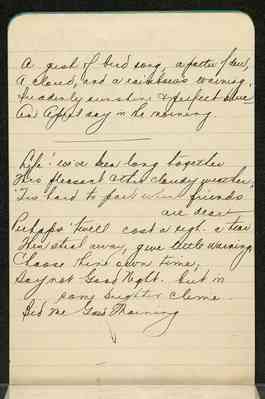 A gush of bird song, a patter of dew,
A cloud, and a rainbow's warning,
Suddenly sunshine & perfect blue
An April day in the morning.
Life! we've been long together
Thro pleasant & thro cloudy weather,
'Tis hard to part when friends
are dear
Perhaps 'twill cost a sigh, a tear
Then steal away, give little warning
Choose thine own time,
Say not Good Night, but in
some brighter clime
Bid me Good Morning